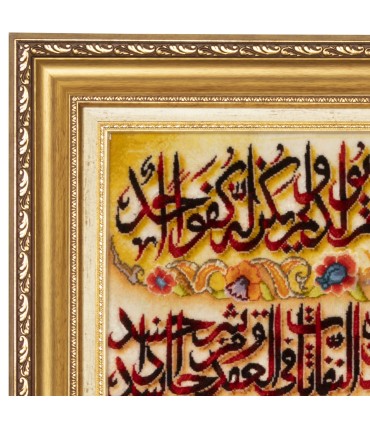 ولم يكن له كفوا احد
النفاثات في العقد ومن شر حاسد اذا حسد